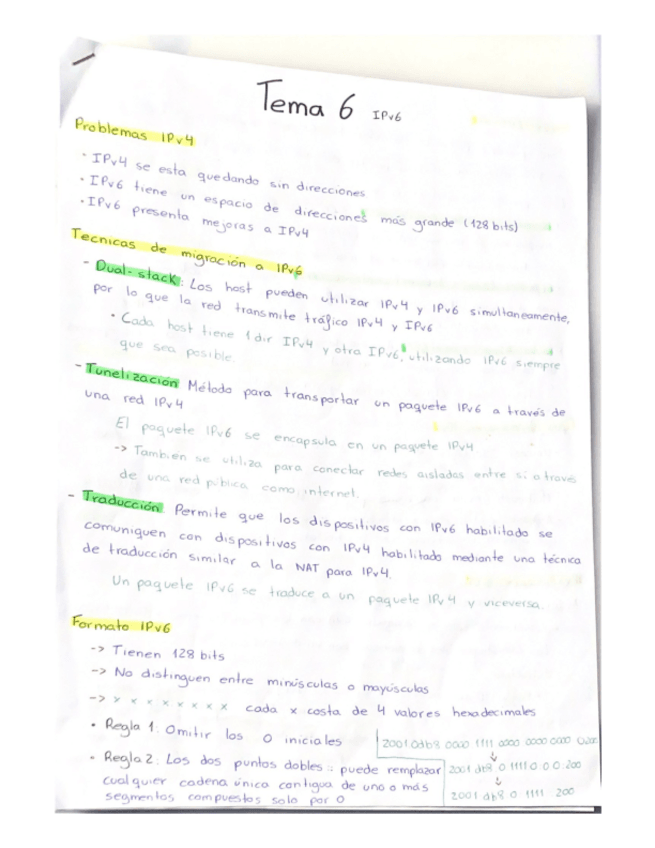 Tema 6 IPv6
Problemas IPv4
· IPv4 se esta quedando sin direcciones
· IPv6 tiene un espacio de direcciones más grande (128 bits)
· IPv6 presenta mejoras a IPv4
Tecnicas de migración a IPv6
- Dual-stack: Los host pueden utilizar IPv4 y IPv6 simultaneamente,
por lo que la red transmite tráfico IPv4 y IPv6
· Cada host tiene 1 dir IPv4 y otra IPv6, utilizando IPv6 siempre
que sea posible.
- Tunelización Método para transportar un paquete IPv6 a través de
una red IPv4
El paquete IPv6 se encapsula en un paquete IPv4
-> Tambien se utiliza para conectar redes aisladas entre si a través
de una red pública como internet.
- Traducción Permite que los dispositivos con IPv6 habilitado se
comuniquen con dispositivos con IPv4 habilitado mediante una técnica
de traducción similar a la NAT para IPv4.
Un paquete IPv6 se traduce a un paquete IPv4 y viceversa.
Formato IPv6
-> Tienen 128 bits
-> No distinguen entre minúsculas o mayúsculas
-> x x x x x x x x cada x costa de 4 valores hexadecimales
· Regla 1. Omitir los 0 iniciales
2001 0db8 0000 1111 0000 0000 0000 0200
· Regla 2. Los dos puntos dobles :: puede remplazar
2001 db8 0 1111 0 0 0 200
cualquier cadena única contigua de uno o más
segmentos compuestos solo por 0
2001 db8 0 1111 200